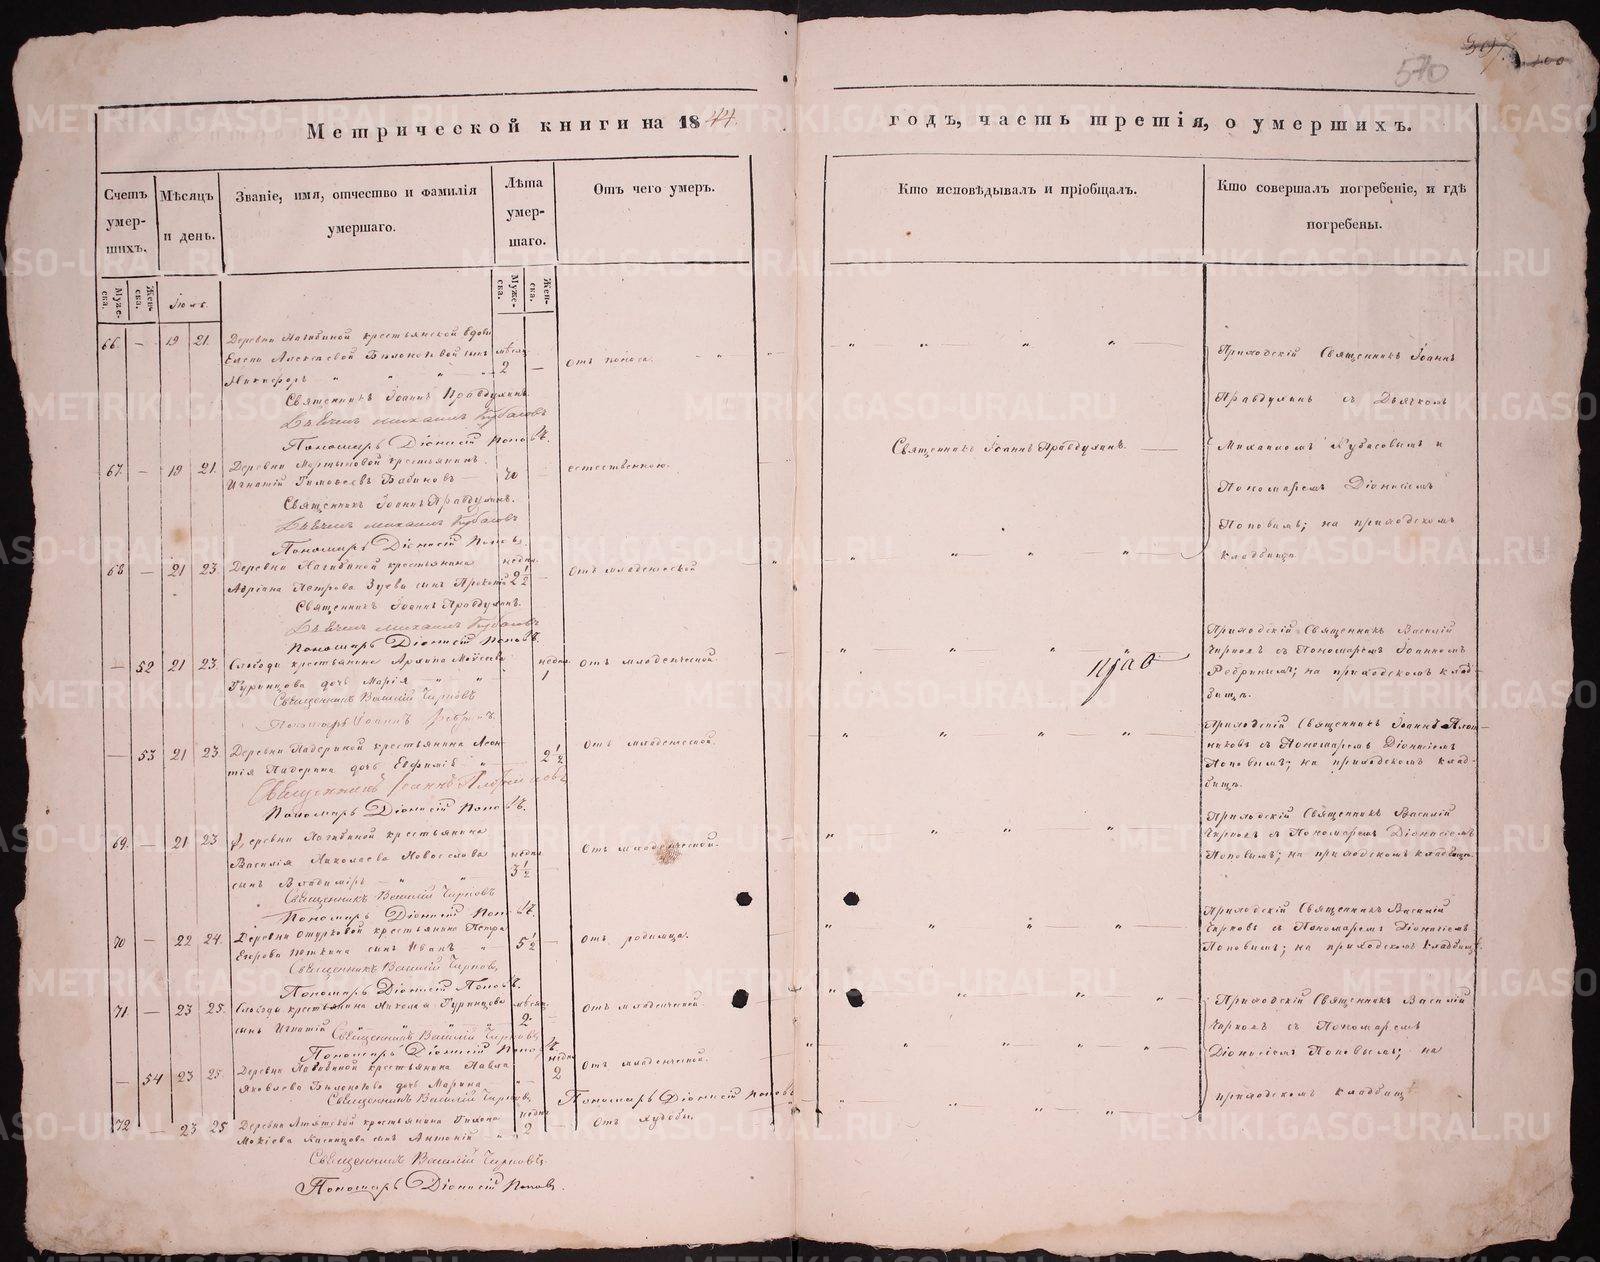 570
Метрической книги на 1844 годъ, часть третія, о умершихъ.
Счетъ умер-шихъ.
Мѣсяцъ и день.
Званіе, имя, отчество и фамилія умершаго.
Лѣта умер-шаго.
Отъ чего умеръ.
Кто исповѣдывалъ и пріобщалъ.
Кто совершалъ погребеніе, и гдѣ погребены.
Муже-ска.
Жен-ска.
Іюль.
Муже-ска.
Жен-ска.
66. — 19 21. Деревни Нагибиной крестьянской вдовы
Елены Алексѣевой Бѣлоконевой сынъ мѣсяц. 2 — отъ поноса.
Никифоръ
Священникъ Іоаннъ Правдухинъ.
Дьячекъ Михаилъ Кубасовъ
Пономарь Діонисій Поповъ.
67. — 19 21. Деревни Мартыновой крестьянинъ
Игнатій Тимофеевъ Бабиновъ — 70 — естественною.
Священникъ Іоаннъ Правдухинъ.
Священникъ Іоаннъ Правдухинъ.
Дьячекъ Михаилъ Кубасовъ
Пономарь Діонисій Поповъ.
Приходскій Священникъ Іоаннъ
Правдухинъ съ Дьячкомъ
Михаиломъ Кубасовымъ и
Пономаремъ Діонисіемъ
Поповымъ; на приходскомъ
кладбищѣ
68 — 21 23. Деревни Нагибиной крестьянина недѣл.
Адріана Петрова Зуева сынъ Прокопій 2 1/2 — отъ младенческой
Священникъ Іоаннъ Правдухинъ.
Дьячекъ Михаилъ Кубасовъ
Пономарь Діонисій Поповъ.
— 52 21 23. Слободы крестьянина Архипа Моѵсеева недѣл. отъ младенческой.
Гуринцова дочь Марія 1
Священникъ Василій Чирковъ
Пономарь Іоаннъ Ребринъ.
Приходскій Священникъ Василій
Чирковъ съ Пономаремъ Іоанномъ
Ребринымъ; на приходскомъ клад-
бищѣ.
— 53 21 23. Деревни Падериной крестьянина Леон-
тія Падерина дочь Евфимія 2 1/2 отъ младенческой.
Священникъ Іоаннъ Плотниковъ
Пономарь Діонисій Поповъ.
Приходскій Священникъ Іоаннъ Плот-
никовъ съ Пономаремъ Діонисіемъ
Поповымъ; на приходскомъ клад-
бищѣ.
69. — 21 23. Деревни Нагибиной крестьянина
Василія Николаева Новоселова недѣл. отъ младенческой.
сынъ Владиміръ — 3 1/2
Священникъ Василій Чирковъ
Пономарь Діонисій Поповъ.
Приходскій Священникъ Василій
Чирковъ съ Пономаремъ Діонисіемъ
Поповымъ; на приходскомъ кладбищѣ.
70 — 22 24. Деревни крестьянина Петра
Егорова сынъ Иванъ 5 1/2 — отъ родимца.
Священникъ Василій Чирковъ
Пономарь Діонисій Поповъ.
Приходскій Священникъ Василій
Чирковъ съ Пономаремъ Діонисіемъ
Поповымъ; на приходскомъ кладбищѣ.
71 — 23 25. Слободы крестьянина Николая Гуринцова мѣсяц. отъ младенческой.
сынъ Игнатій 2.
Священникъ Василій Чирковъ
Пономарь Діонисій Поповъ.
— 54 23 25. Деревни Нагибиной крестьянина Павла недѣл. отъ младенческой.
Яковлева Бѣлоконева дочь Марина — 2
Священникъ Василій Чирковъ Пономарь Діонисій Поповъ
72 — 23 25 Деревни крестьянина Тихона недѣл. отъ худобы.
Мокіева сынъ Антоній 2
Священникъ Василій Чирковъ.
Пономарь Діонисій Поповъ.
Приходскій Священникъ Василій
Чирковъ съ Пономаремъ
Діонисіемъ Поповымъ; на
приходскомъ кладбищѣ
METRIKI.GASO-URAL.RU